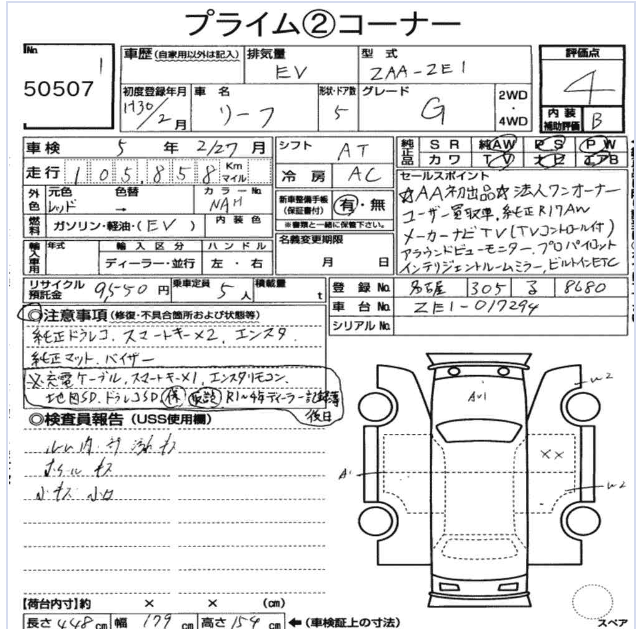 プライム②コーナー
No.
50507
1
車歴 (自家用以外は記入)
排気量
EV
型式
ZAA-ZE1
評価点
4
内装
補助評価
B
初度登録年月
H30/2月
車名
リーフ
形状・ドア数
5
グレード
G
2WD
・
4WD
車検 5 年 2/27 月
シフト AT
冷房 AC
純正品 SR 純AW PS PW
カワ TV ナビ エアB
走行 105,858 Km
マイル
外色 元色 レッド
色替 →
カラーNo. NAH
燃料 ガソリン・軽油・(EV)
内装色
新車整備手帳
(保証書付)
有・無
※書類と一緒に保管下さい。
名義変更期限
月 日
セールスポイント
☆AA初出品☆法人ワンオーナー
ユーザー買取車, 純正R17AW
メーカーナビTV(TVコントロール付)
アラウンドビューモニター, プロパイロット
インテリジェントルームミラー, ビルトインETC
輸入車用 年式
輸入区分
ディーラー・並行
ハンドル
左・右
リサイクル預託金 9,550 円
乗車定員 5人
積載量 t
登録No. 名古屋 305 る 8680
車台No. ZE1-017294
シリアルNo.
◎注意事項 (修復・不具合箇所および状態等)
純正ドラレコ, スマートキー×2, エンスタ
純正マット, バイザー
※充電ケーブル, スマートキー×1, エンスタリモコン,
地図SD, ドラレコSD, 保 取説 R1~4年ディーラー記録簿
後日
◎検査員報告 (USS使用欄)
キズ
小キズ
A1
A1
××
W2
W2
【荷台内寸】約 × × (cm)
長さ 448 cm 幅 179 cm 高さ 154 cm ←(車検証上の寸法)
スペア